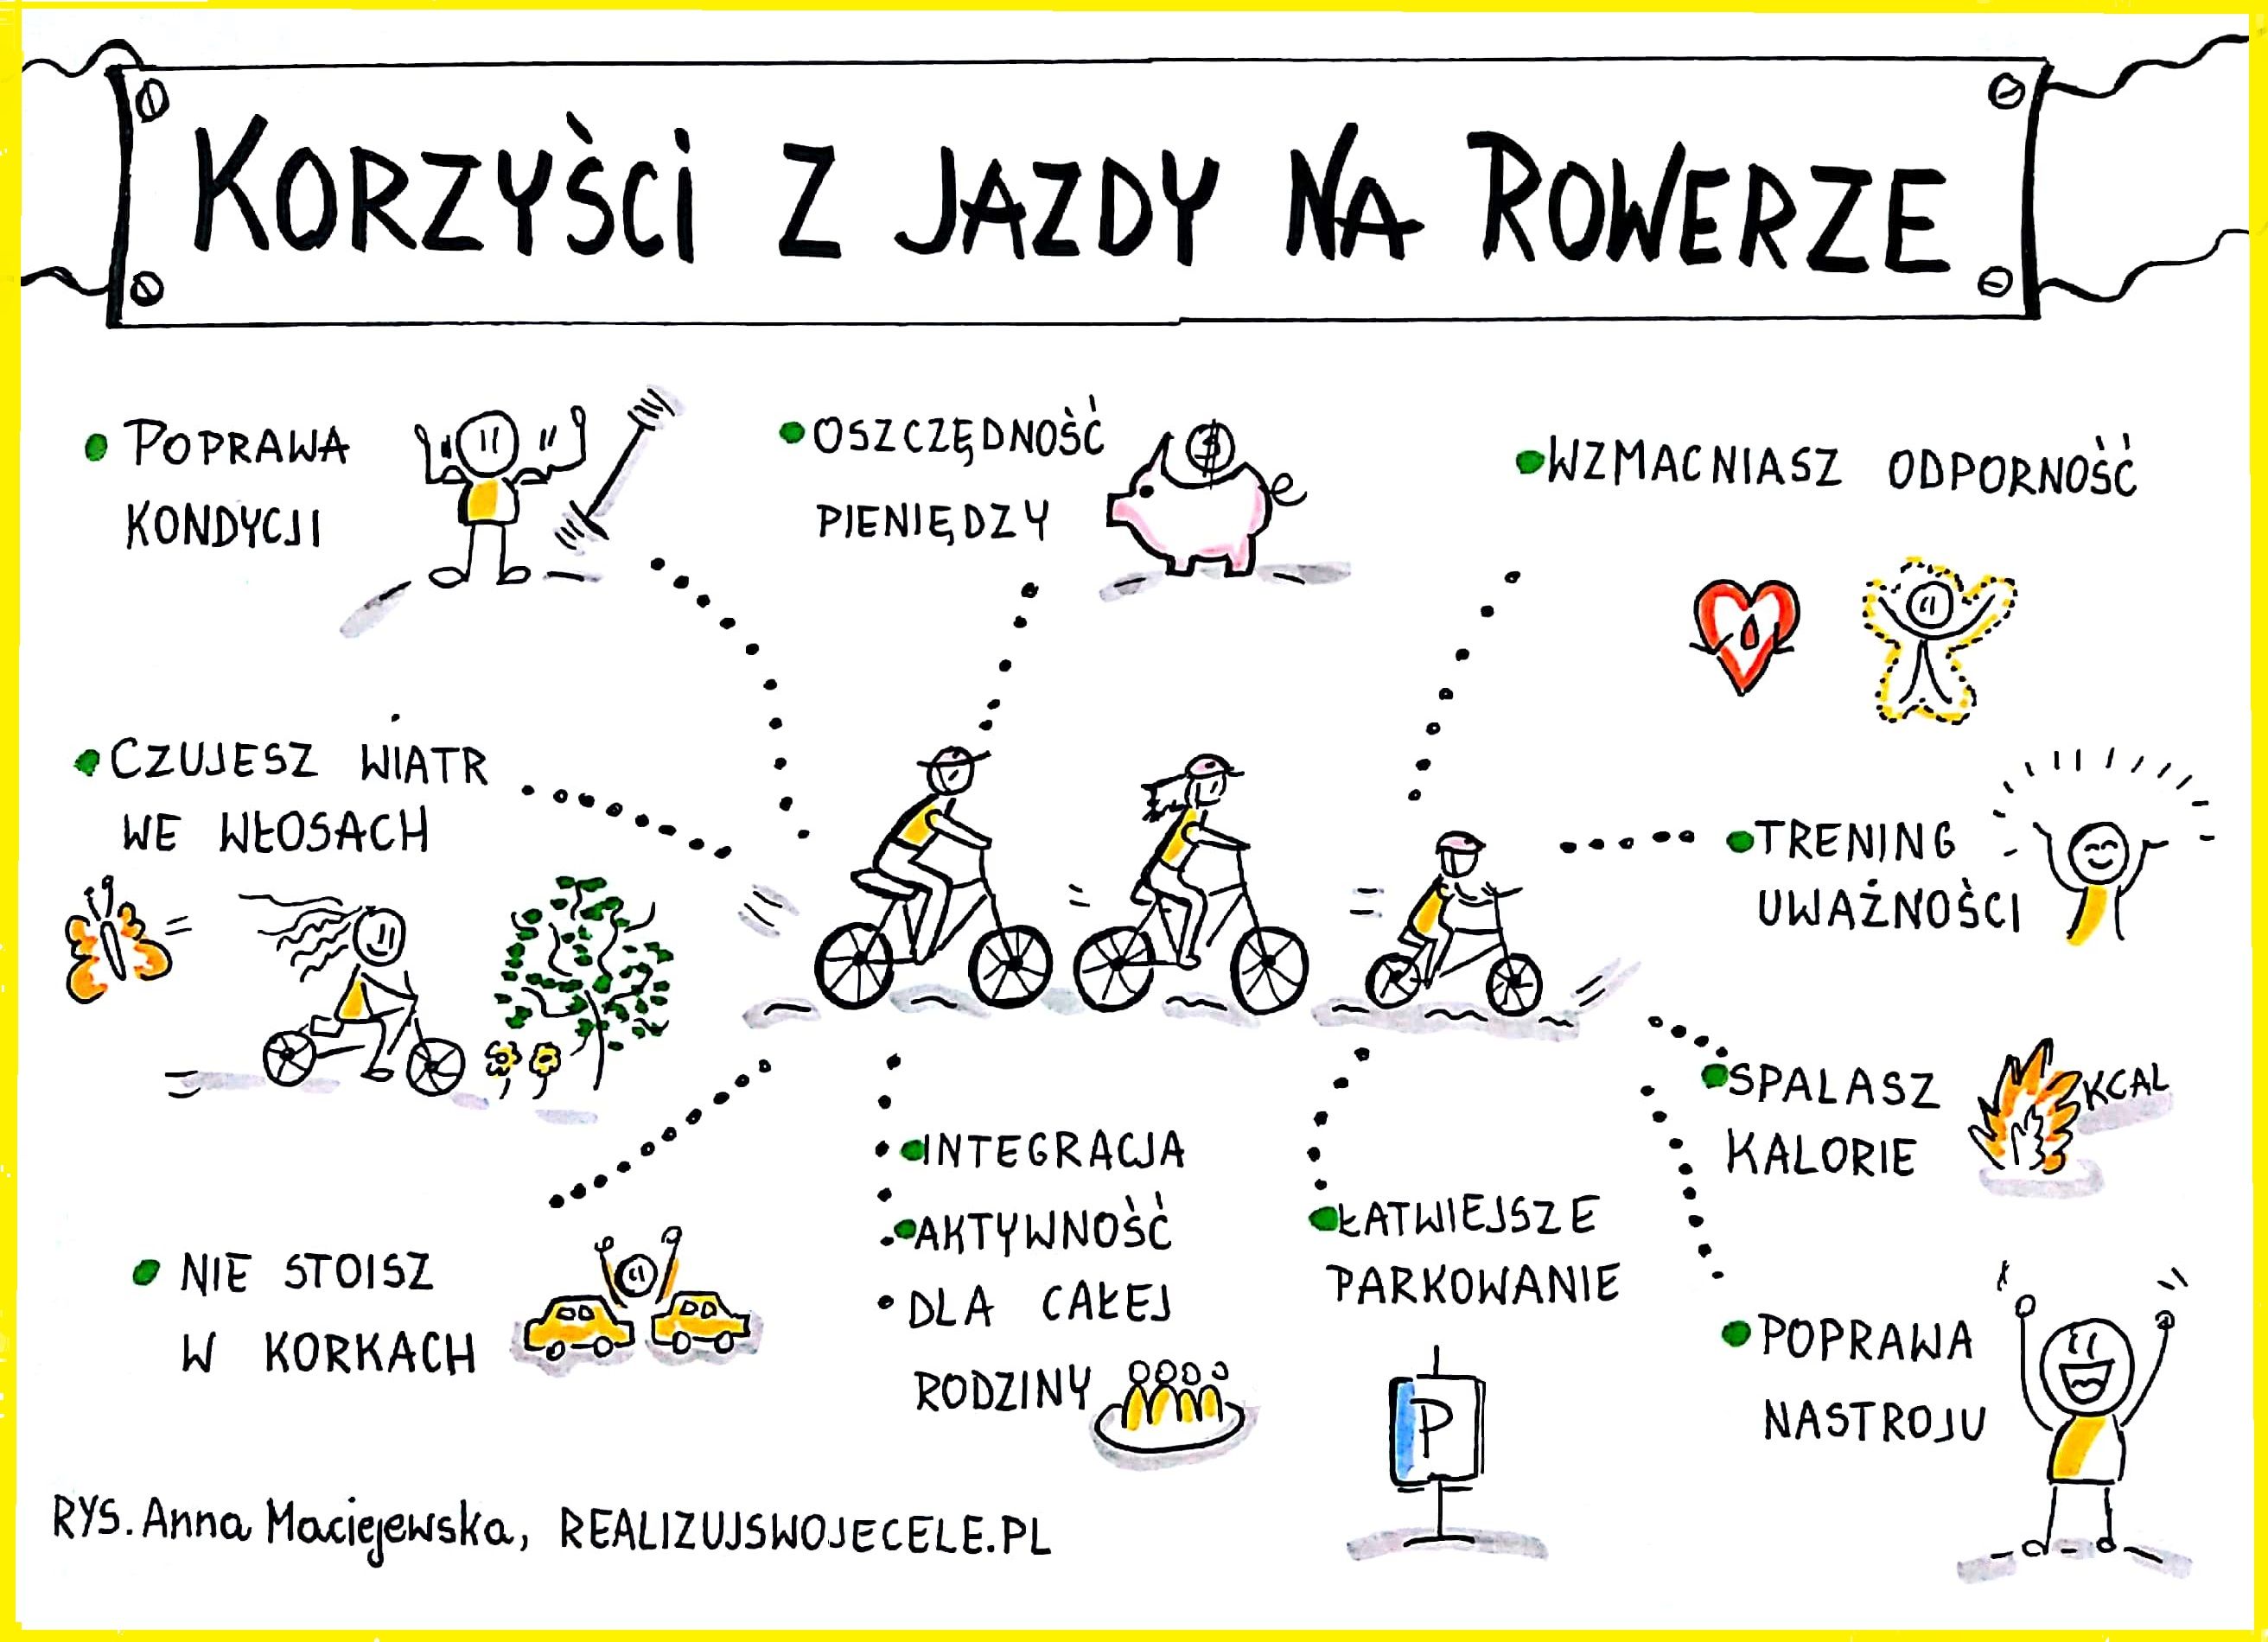 KORZYŚCI Z JAZDY NA ROWERZE
POPRAWA
KONDYCJI
OSZCZĘDNOŚĆ
PIENIĘDZY
$
WZMACNIASZ ODPORNOŚĆ
CZUJESZ WIATR
WE WŁOSACH
TRENING
UWAŻNOŚCI
SPALASZ
KALORIE
KCAL
NIE STOISZ
W KORKACH
INTEGRACJA
AKTYWNOŚĆ
DLA CAŁEJ
RODZINY
ŁATWIEJSZE
PARKOWANIE
P
POPRAWA
NASTROJU
RYS. Anna Maciejewska, REALIZUJSWOJECELE.PL